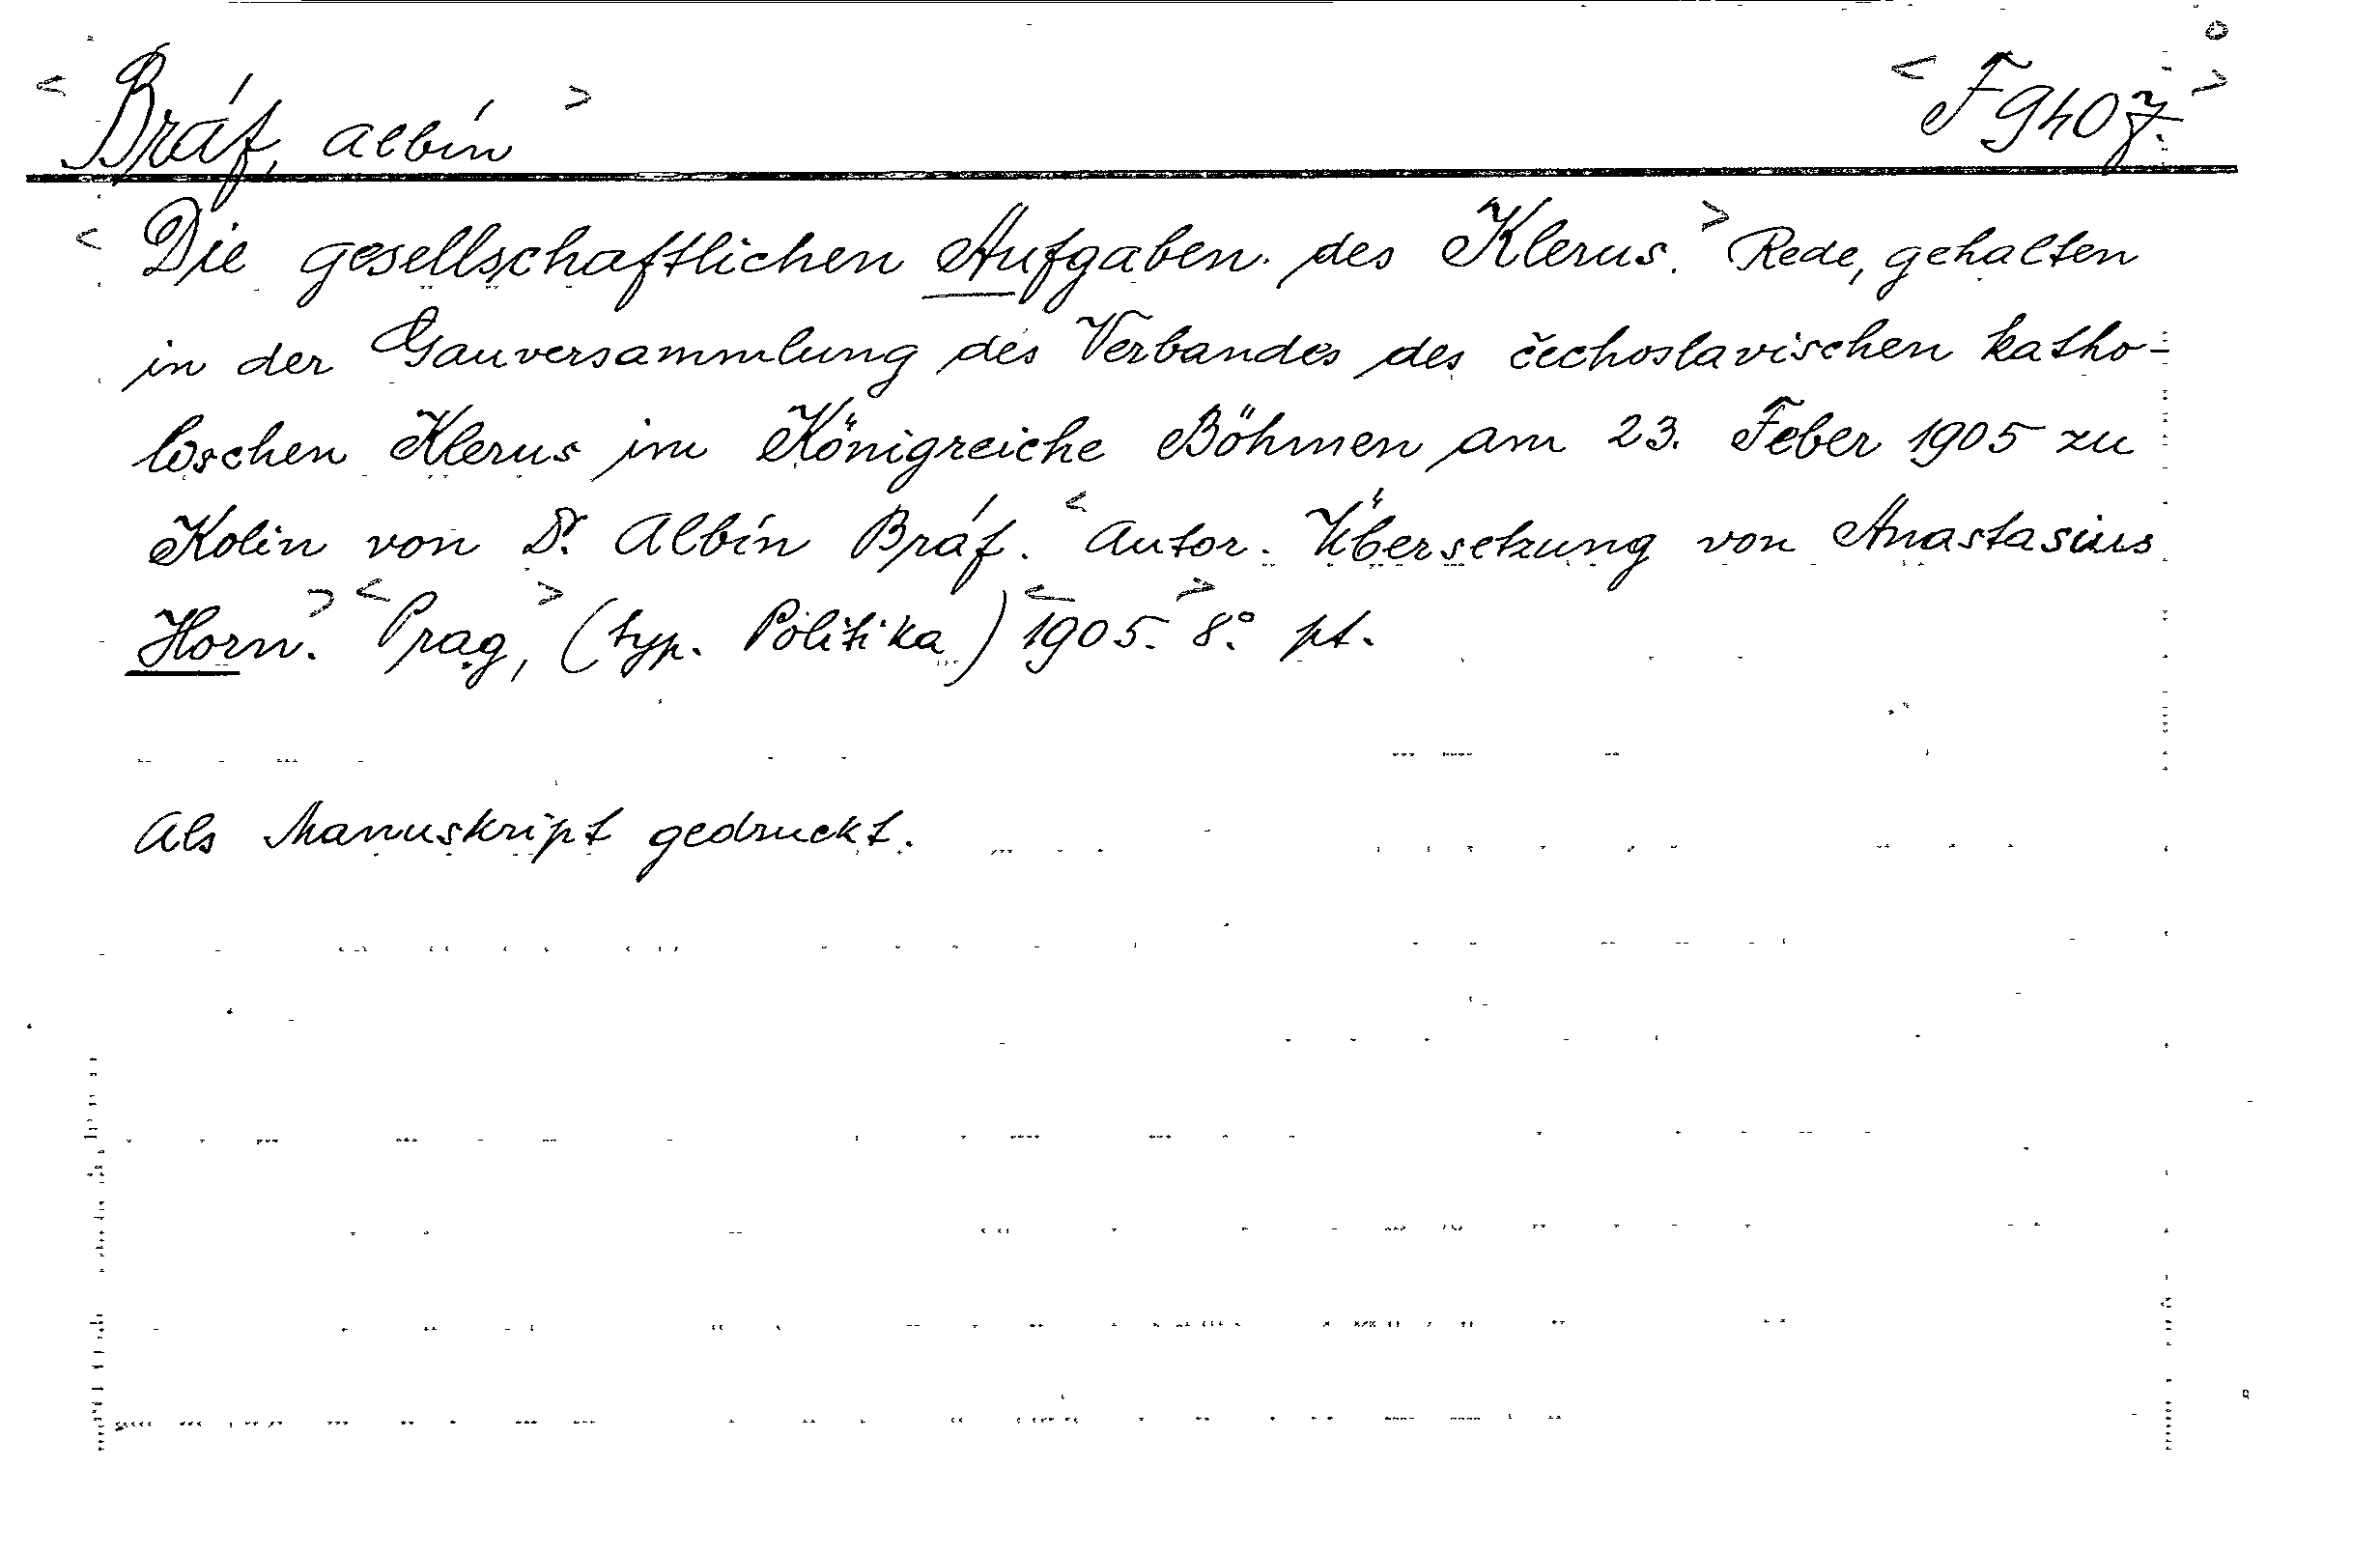 < Bráf, Albín > < F 9407. >
< Die gesellschaftlichen Aufgaben des Klerus. > Rede, gehalten
in der Gauversammlung des Verbandes des čechoslavischen katho-
loschen Klerus im Königreiche Böhmen am 23. Feber 1905 zu
Kolin von Dr. Albín Bráf. < Autor. Übersetzung von Anastasius
Horn. > < Prag, > (typ. Politika) < 1905. > 8°. pt.
Als Manuskript gedruckt.